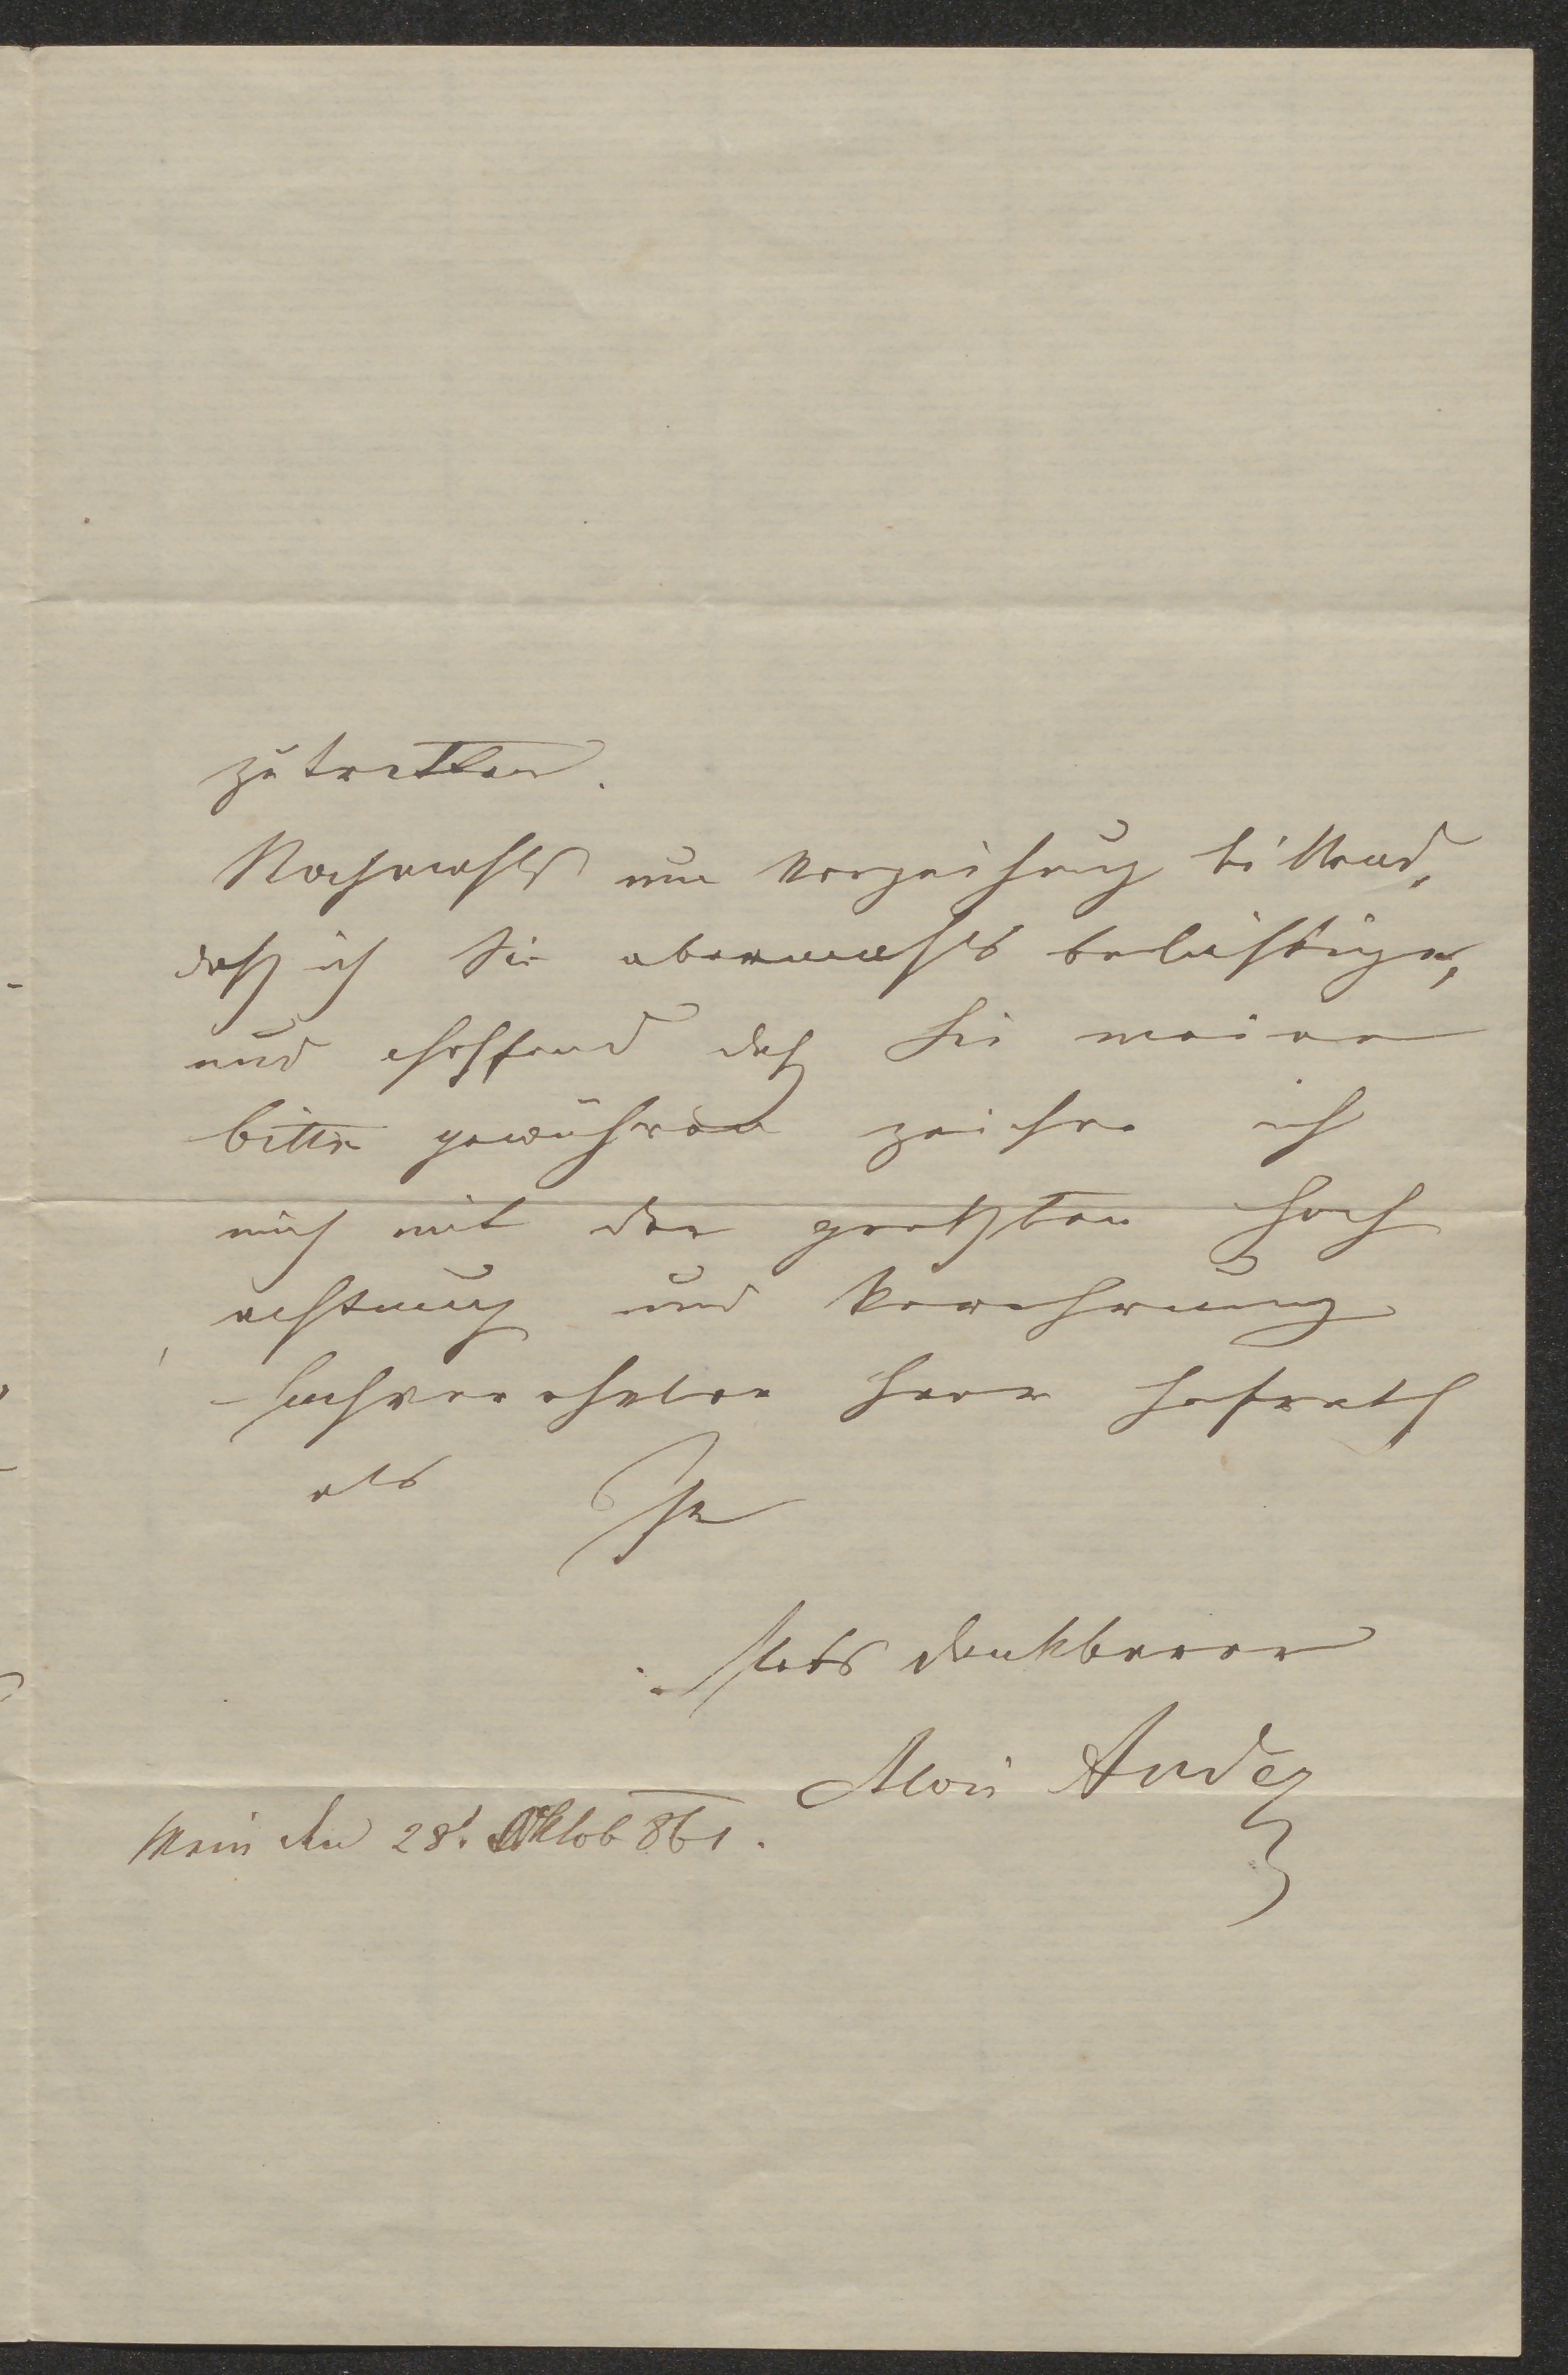 zu tretten.
Nochmahls um Verzeihung bittend,
daß ich Sie abermahls belästige,
und hoffend daß Sie meine
bitte gewähren zeichne ich
mich mit der größten Hoch
achtung und Verehrung
hochverehrter Herr Hofrath
als Ihr
stets dankbarer
Alois Ander
Wien den 28t. Oktob 861.